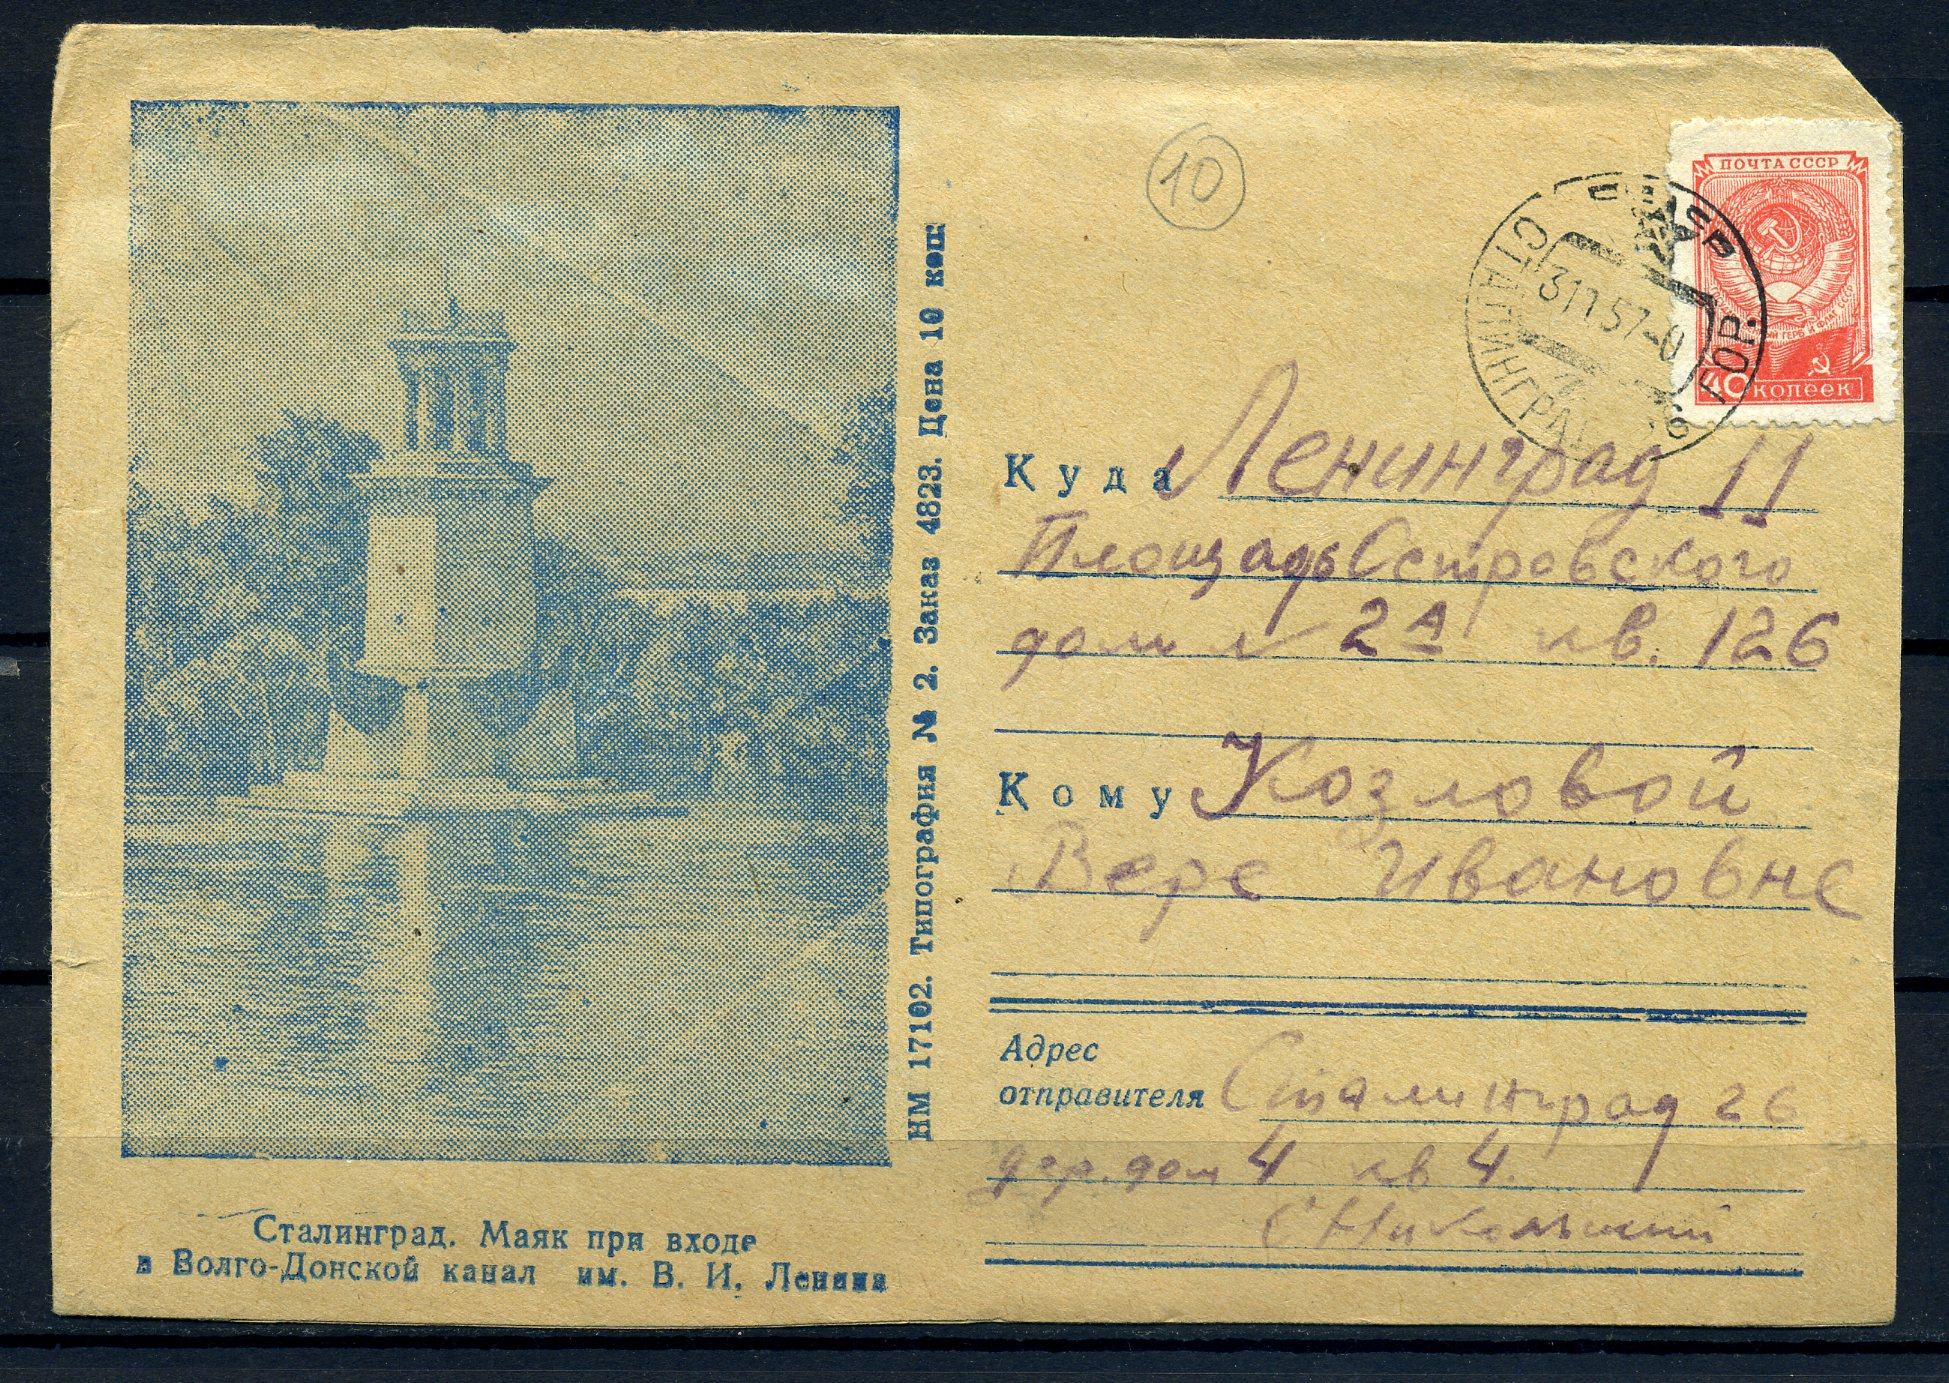 10
ПОЧТА СССР
40 КОПЕЕК
СТАЛИНГРАД
ГОР.
Куда Ленинград 11
Площадь Островского
дом № 2А кв. 126
Кому Козловой
Вере Ивановне
Адрес
отправителя Сталинград 26
дер. дом 4 кв 4.
Никольский
НМ 17102. Типография № 2. Заказ 4823. Цена 10 коп
Сталинград. Маяк при входе
в Волго-Донской канал им. В. И. Ленина